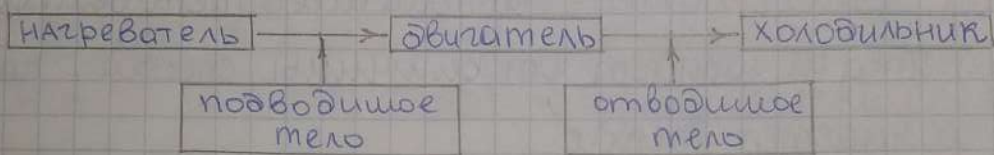 нагреватель двигатель холодильник
подводимое отводимое
тело тело